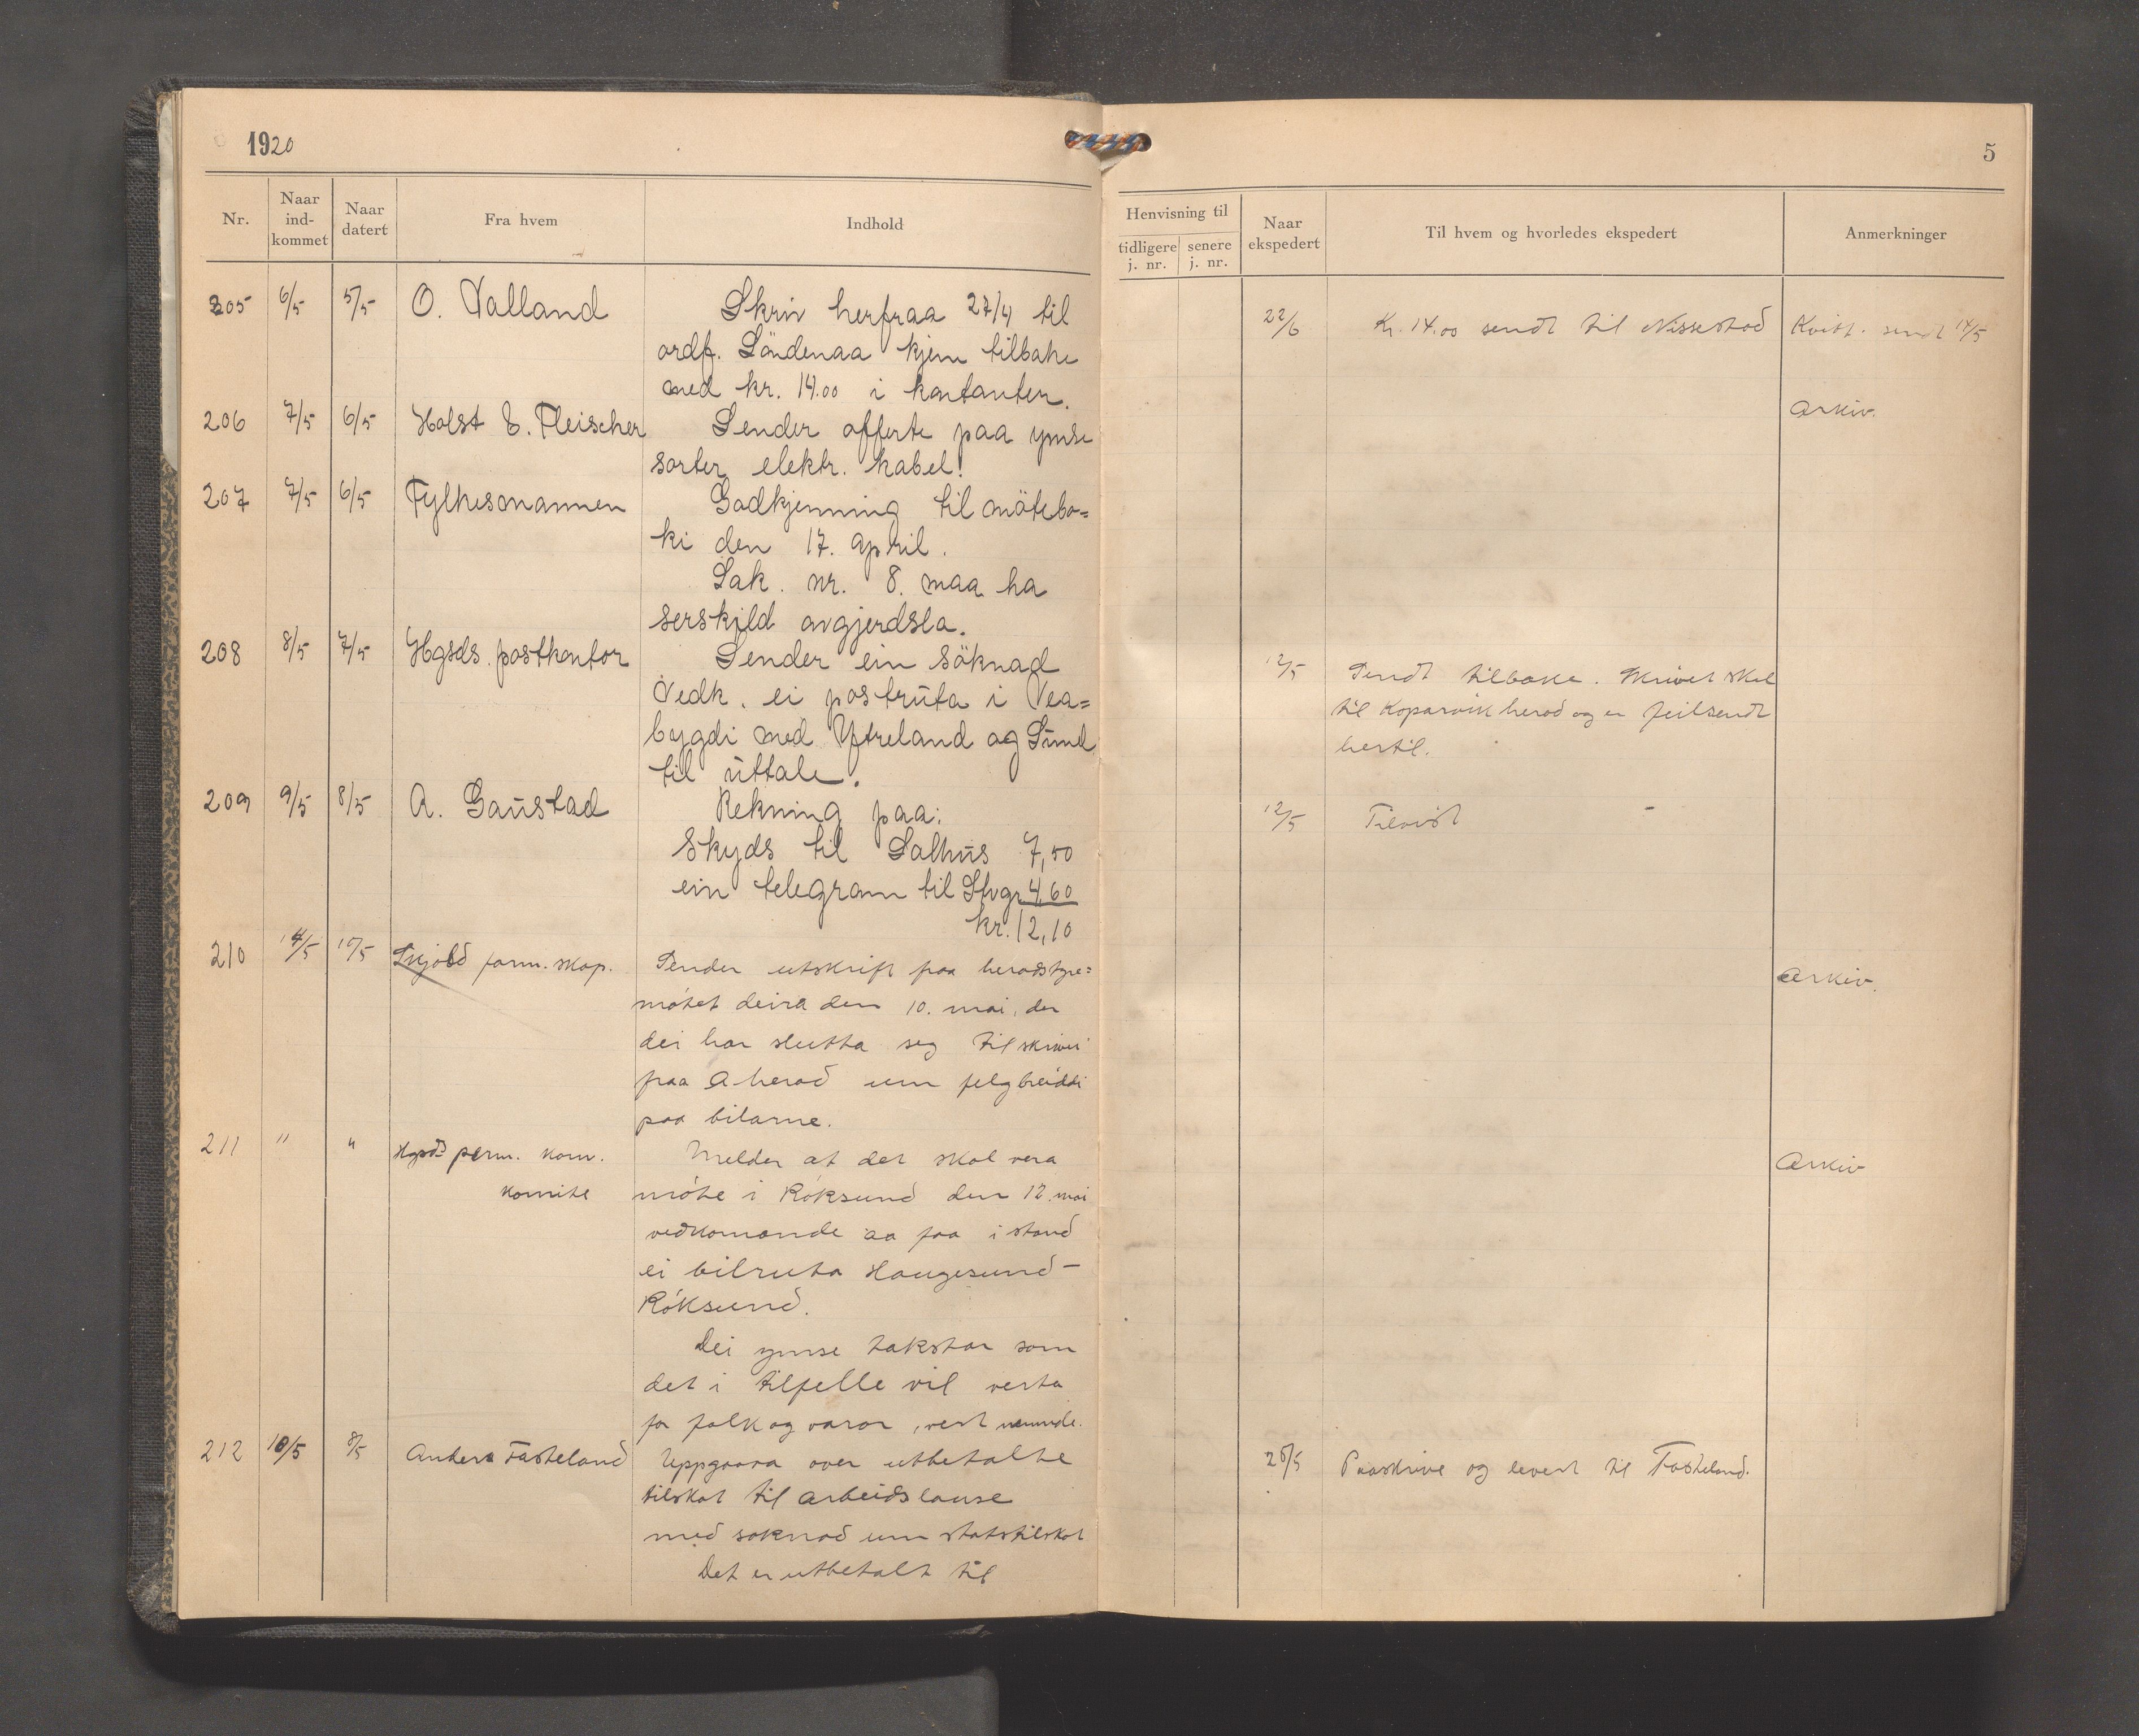 1920
Nr.
Naar
ind-
kommet
Naar
datert
Fra hvem
Indhold
205 6/5 5/5 O. Valland Skriv herfraa 27/4 til
ordf. Söndenaa kjem tilbake
med kr. 14.00 i kontanter.
206 7/5 6/5 Holst & Fleischer Sender offerte paa ymse
sorter elektr. kabel!
207 7/5 6/5 Fylkesmannen Godkjenning til mötebo=
ki den 17. april.
Sak. nr. 8. maa ha
serskild avgjerdsla.
208 8/5 7/5 Hgsds. postkontor Sender ein söknad
vedk. ei postruta i Vea=
bygdi med Ytreland og Sund
til uttale.
209 9/5 8/5 A. Gaustad Rekning paa:
Skyds til Salhus 7,50
ein telegram til Stvgr 4,60
kr. 12,10
210 14/5 10/5 Skjold form.skap. Sender utskrift fraa heradstyre=
møtet deira den 10. mai, der
dei har slutta seg til skrivet
fraa A herad um felgbreiddi
paa bilarne.
211 " " Hgsds perm. kom. Melder at det skal vera
komite møte i Røksund den 12. mai
vedkomande aa faa i stand
ei bilruta Haugesund –
Røksund.
Dei ymse takstar som
det i tilfelle vil verta
for folk og varor, vert nemnde.
212 10/5 8/5 Anders Fasteland Uppgaava over utbetalte
tilskot til arbeidslause
med soknad um statstilskot
Det er utbetalt til
5
Henvisning til
tidligere
j. nr.
senere
j. nr.
Naar
ekspedert
Til hvem og hvorledes ekspedert
Anmerkninger
22/6 Kr. 14.00 sendt til Nissestad Kvitt. sendt 14/5
Arkiv.
12/5 Sendt tilbake. Skrivet skal
til Kopervik herad og er feilsendt
hertil.
12/5 Tilvist
Arkiv.
Arkiv
25/5 Paaskrive og levert til Fasteland.